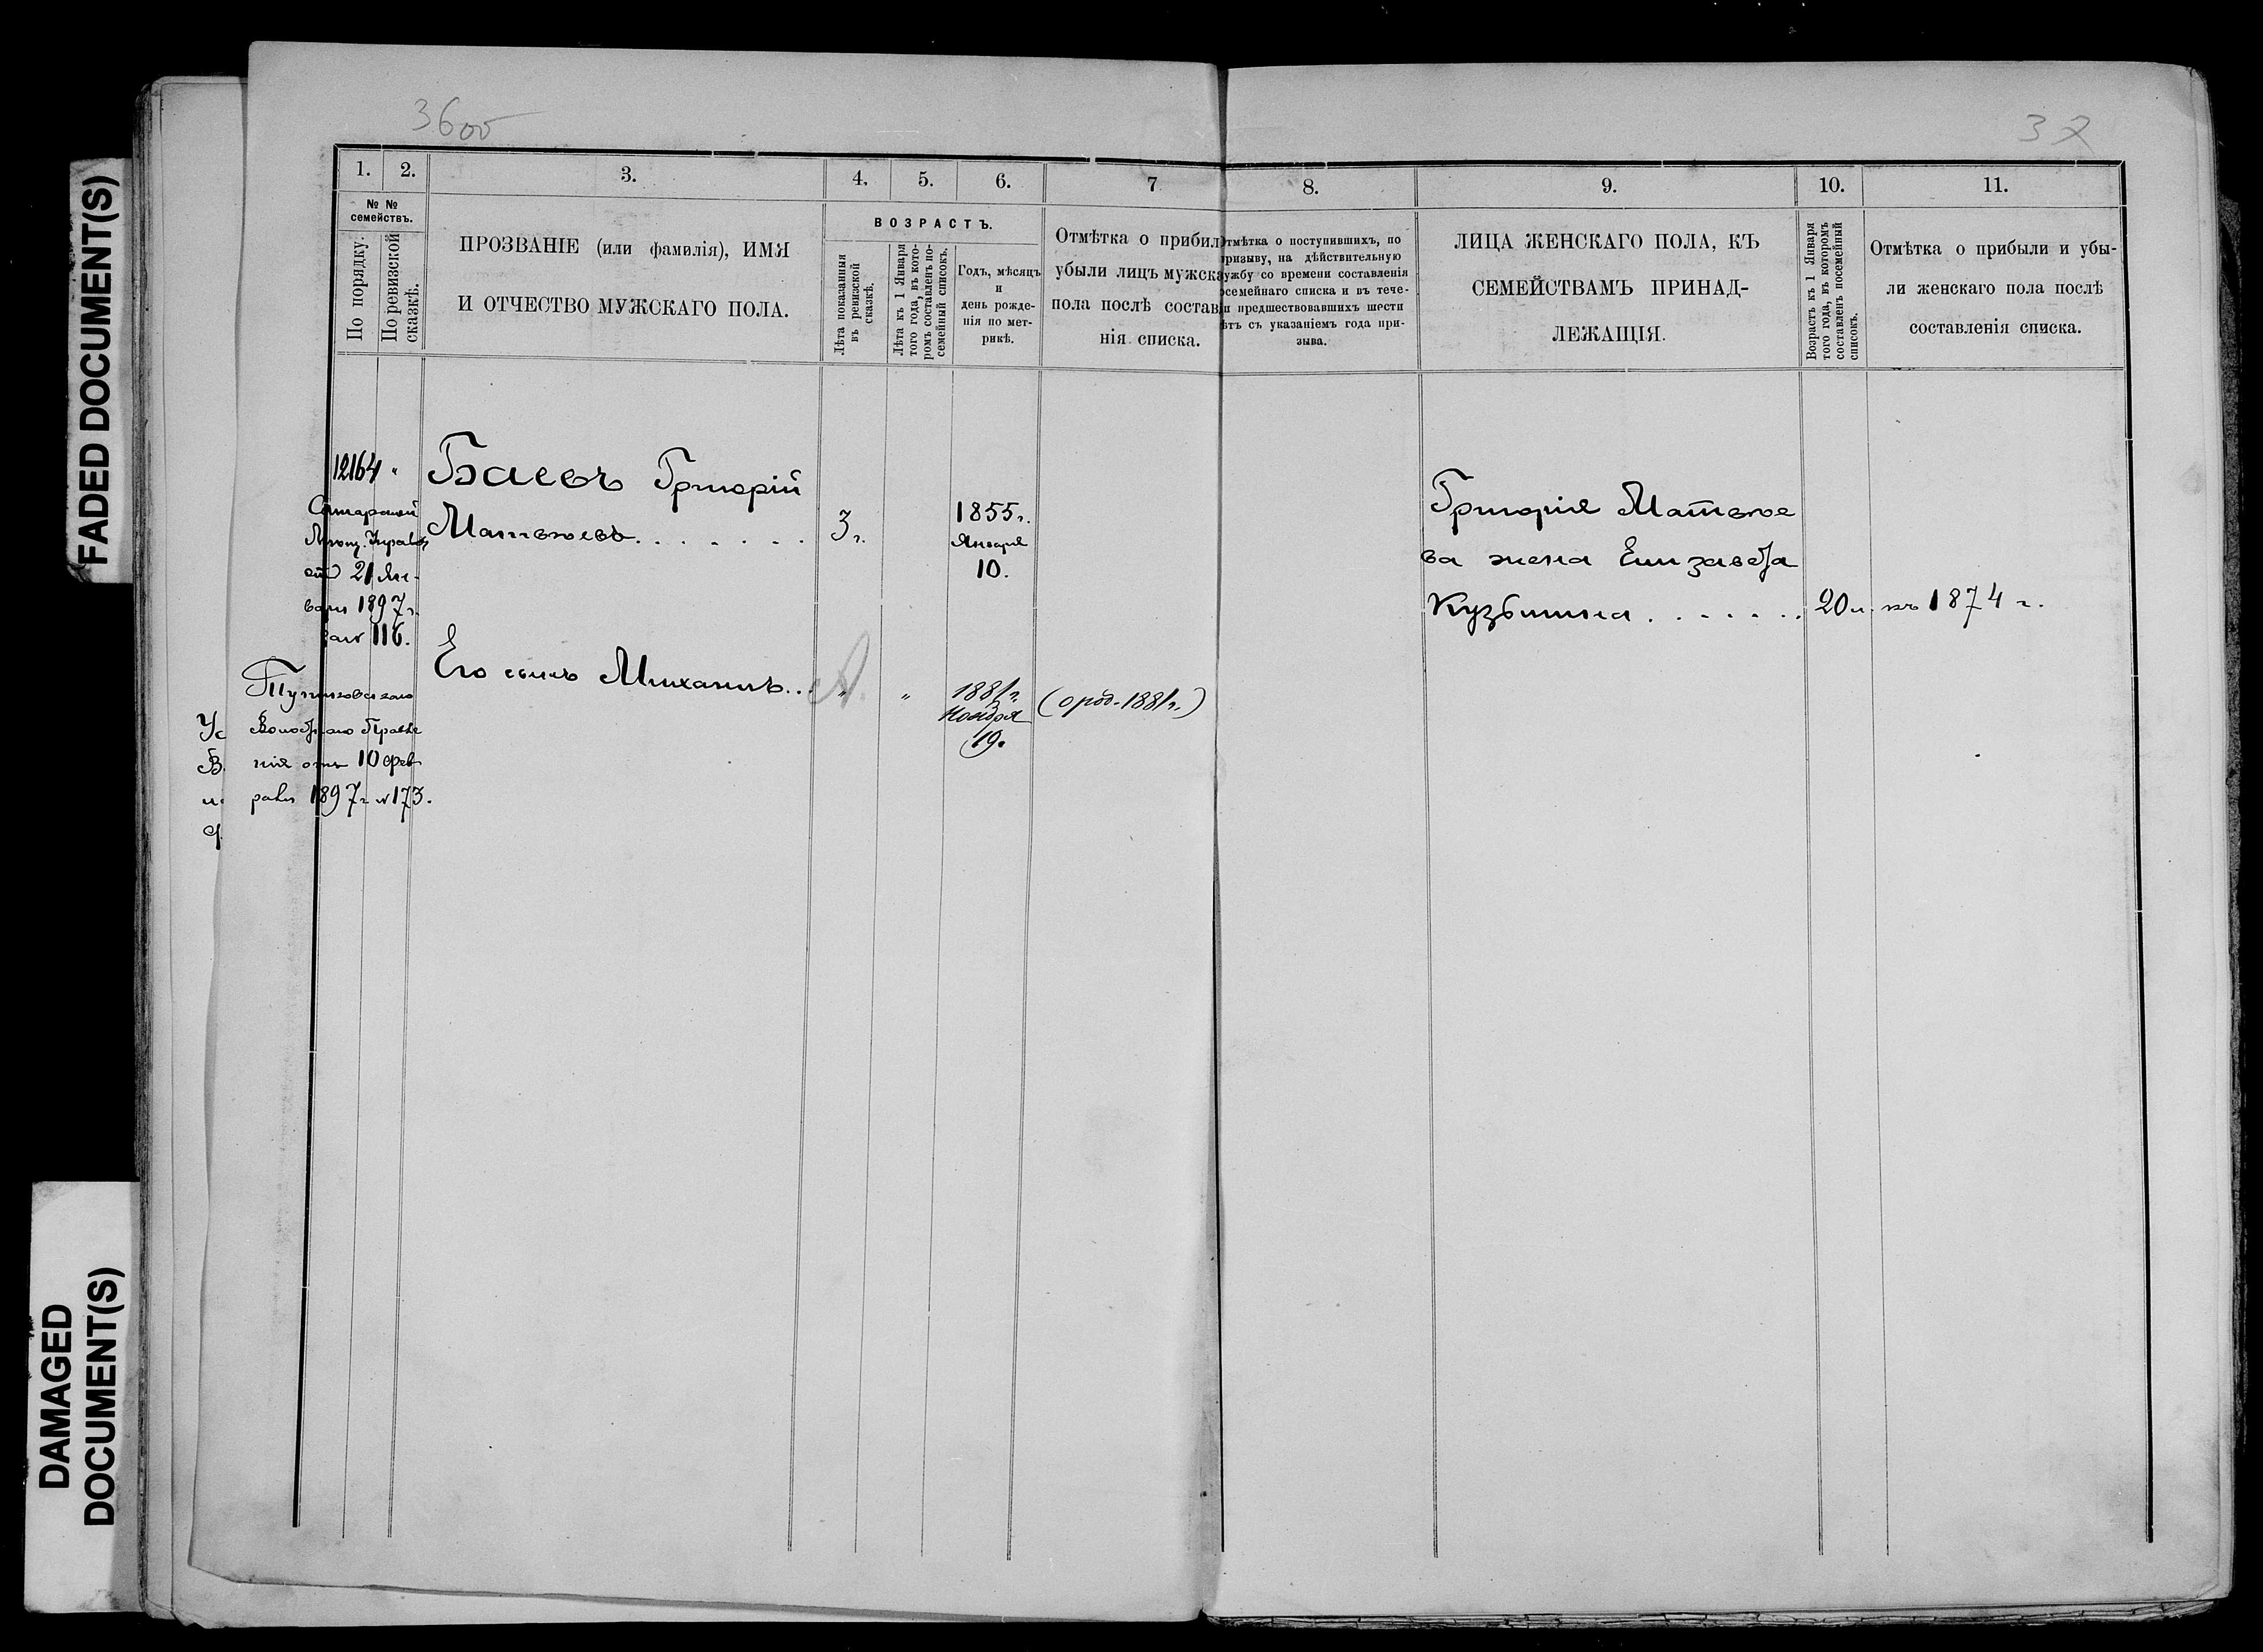 FADED DOCUMENT(S)
DAMAGED
DOCUMENT(S)
36об
37
1. 2. 3. 4. 5. 6. 7
№ №
семействъ.
По порядку.
По ревизской
сказкѣ.
ПРОЗВАНІЕ (или фамилія), ИМЯ
И ОТЧЕСТВО МУЖСКАГО ПОЛА.
ВОЗРАСТЪ.
Лѣта показанныя
въ ревизской
сказкѣ.
Лѣта къ 1 Января
того года, въ кото-
ромъ составленъ по-
семейный списокъ.
Годъ, мѣсяцъ
и
день рожде-
нія по мет-
рикѣ.
Отмѣтка о прибыли
убыли лицъ мужска
пола послѣ состав
нія списка.
8. 9. 10. 11.
Отмѣтка о поступившихъ, по
призыву, на дѣйствительную
ужбу со времени составленія
осемейнаго списка и въ тече-
и предшествовавшихъ шести
ѣтъ съ указаніемъ года при-
зыва.
ЛИЦА ЖЕНСКАГО ПОЛА, КЪ
СЕМЕЙСТВАМЪ ПРИНАД-
ЛЕЖАЩІЯ.
Возрастъ къ 1 Января
того года, въ которомъ
составленъ посемейный
списокъ.
Отмѣтка о прибыли и убы-
ли женскаго пола послѣ
составленія списка.
12164 "
Баевъ Григорій
Матвѣевъ . . . . . . .
3 г.
1855 г.
Января
10.
21 Ян-
варя 1897 г.
за № 116.
Его сынъ Михаилъ . . .
" "
1881 г.
Ноября
19.
(о род. 1881 г.)
Волостнаго Правле
нія отъ 10 фев
раля 1897 г. № 173.
Григорія Матвѣе
ва жена Елизавета
Кузьмина . . . . . . .
20 л. къ 1874 г.